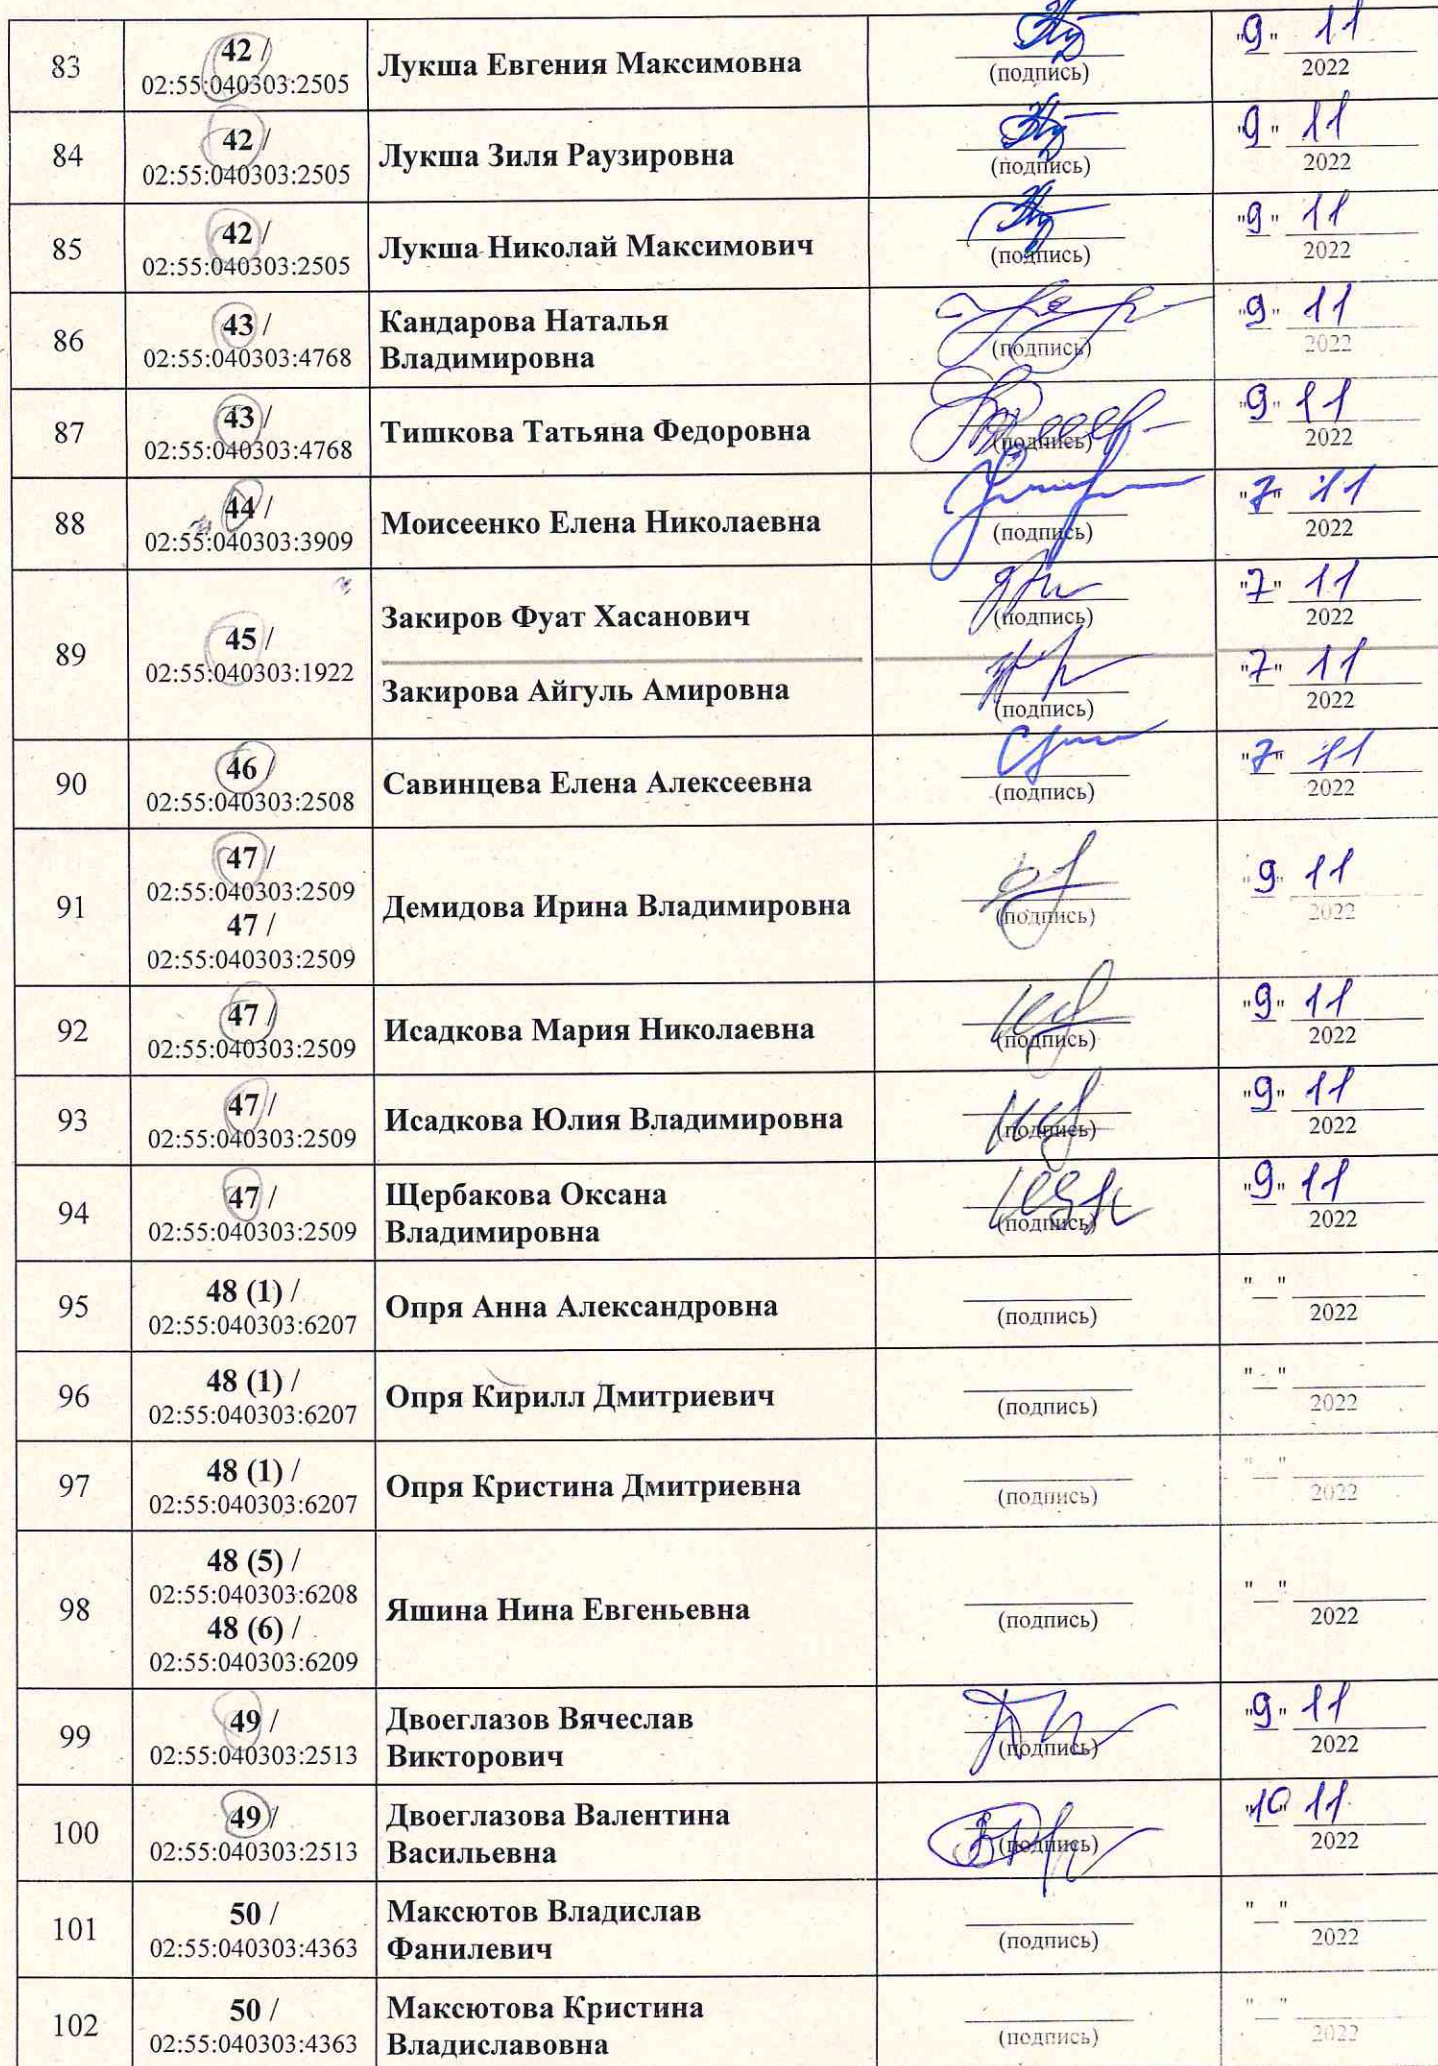 83
42 /
02:55:040303:2505
Лукша Евгения Максимовна
(подпись)
"9" 11
2022
84
42 /
02:55:040303:2505
Лукша Зиля Раузировна
(подпись)
"9" 11
2022
85
42 /
02:55:040303:2505
Лукша Николай Максимович
(подпись)
"9" 11
2022
86
43 /
02:55:040303:4768
Кандарова Наталья
Владимировна
(подпись)
"9" 11
2022
87
43 /
02:55:040303:4768
Тишкова Татьяна Федоровна
(подпись)
"9" 11
2022
88
44 /
02:55:040303:3909
Моисеенко Елена Николаевна
(подпись)
"7" 11
2022
89
45 /
02:55:040303:1922
Закиров Фуат Хасанович
(подпись)
"7" 11
2022
Закирова Айгуль Амировна
(подпись)
"7" 11
2022
90
46 /
02:55:040303:2508
Савинцева Елена Алексеевна
(подпись)
"7" 11
2022
91
47 /
02:55:040303:2509
47 /
02:55:040303:2509
Демидова Ирина Владимировна
(подпись)
"9" 11
2022
92
47 /
02:55:040303:2509
Исадкова Мария Николаевна
(подпись)
"9" 11
2022
93
47 /
02:55:040303:2509
Исадкова Юлия Владимировна
(подпись)
"9" 11
2022
94
47 /
02:55:040303:2509
Щербакова Оксана
Владимировна
(подпись)
"9" 11
2022
95
48 (1) /
02:55:040303:6207
Опря Анна Александровна
(подпись)
"__"
2022
96
48 (1) /
02:55:040303:6207
Опря Кирилл Дмитриевич
(подпись)
"__"
2022
97
48 (1) /
02:55:040303:6207
Опря Кристина Дмитриевна
(подпись)
"__"
2022
98
48 (5) /
02:55:040303:6208
48 (6) /
02:55:040303:6209
Яшина Нина Евгеньевна
(подпись)
"__"
2022
99
49 /
02:55:040303:2513
Двоеглазов Вячеслав
Викторович
(подпись)
"9" 11
2022
100
49 /
02:55:040303:2513
Двоеглазова Валентина
Васильевна
(подпись)
"10" 11
2022
101
50 /
02:55:040303:4363
Максютов Владислав
Фанилевич
(подпись)
"__"
2022
102
50 /
02:55:040303:4363
Максютова Кристина
Владиславовна
(подпись)
"__"
2022